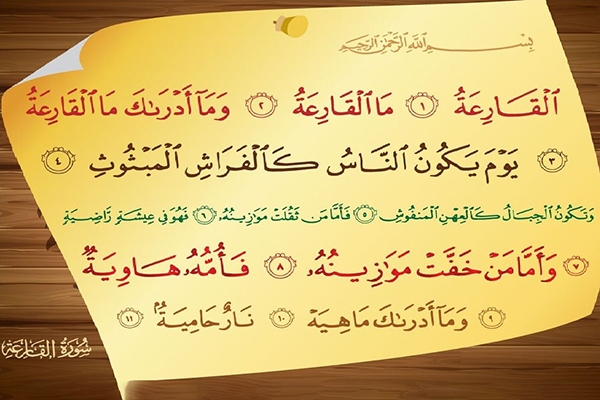 بِسْمِ اللَّهِ الرَّحْمَٰنِ الرَّحِيمِ
ٱلْقَارِعَةُ ۝١ مَا ٱلْقَارِعَةُ ۝٢ وَمَآ أَدْرَىٰكَ مَا ٱلْقَارِعَةُ
۝٣ يَوْمَ يَكُونُ ٱلنَّاسُ كَٱلْفَرَاشِ ٱلْمَبْثُوثِ ۝٤
وَتَكُونُ ٱلْجِبَالُ كَٱلْعِهْنِ ٱلْمَنفُوشِ ۝٥ فَأَمَّا مَن ثَقُلَتْ مَوَٰزِينُهُۥ ۝٦ فَهُوَ فِى عِيشَةٍ رَّاضِيَةٍ
۝٧ وَأَمَّا مَنْ خَفَّتْ مَوَٰزِينُهُۥ ۝٨ فَأُمُّهُۥ هَاوِيَةٌ
۝٩ وَمَآ أَدْرَىٰكَ مَا هِيَهْ ۝١٠ نَارٌ حَامِيَةٌۢ ۝١١
سُورَةُ القَارِعَةِ